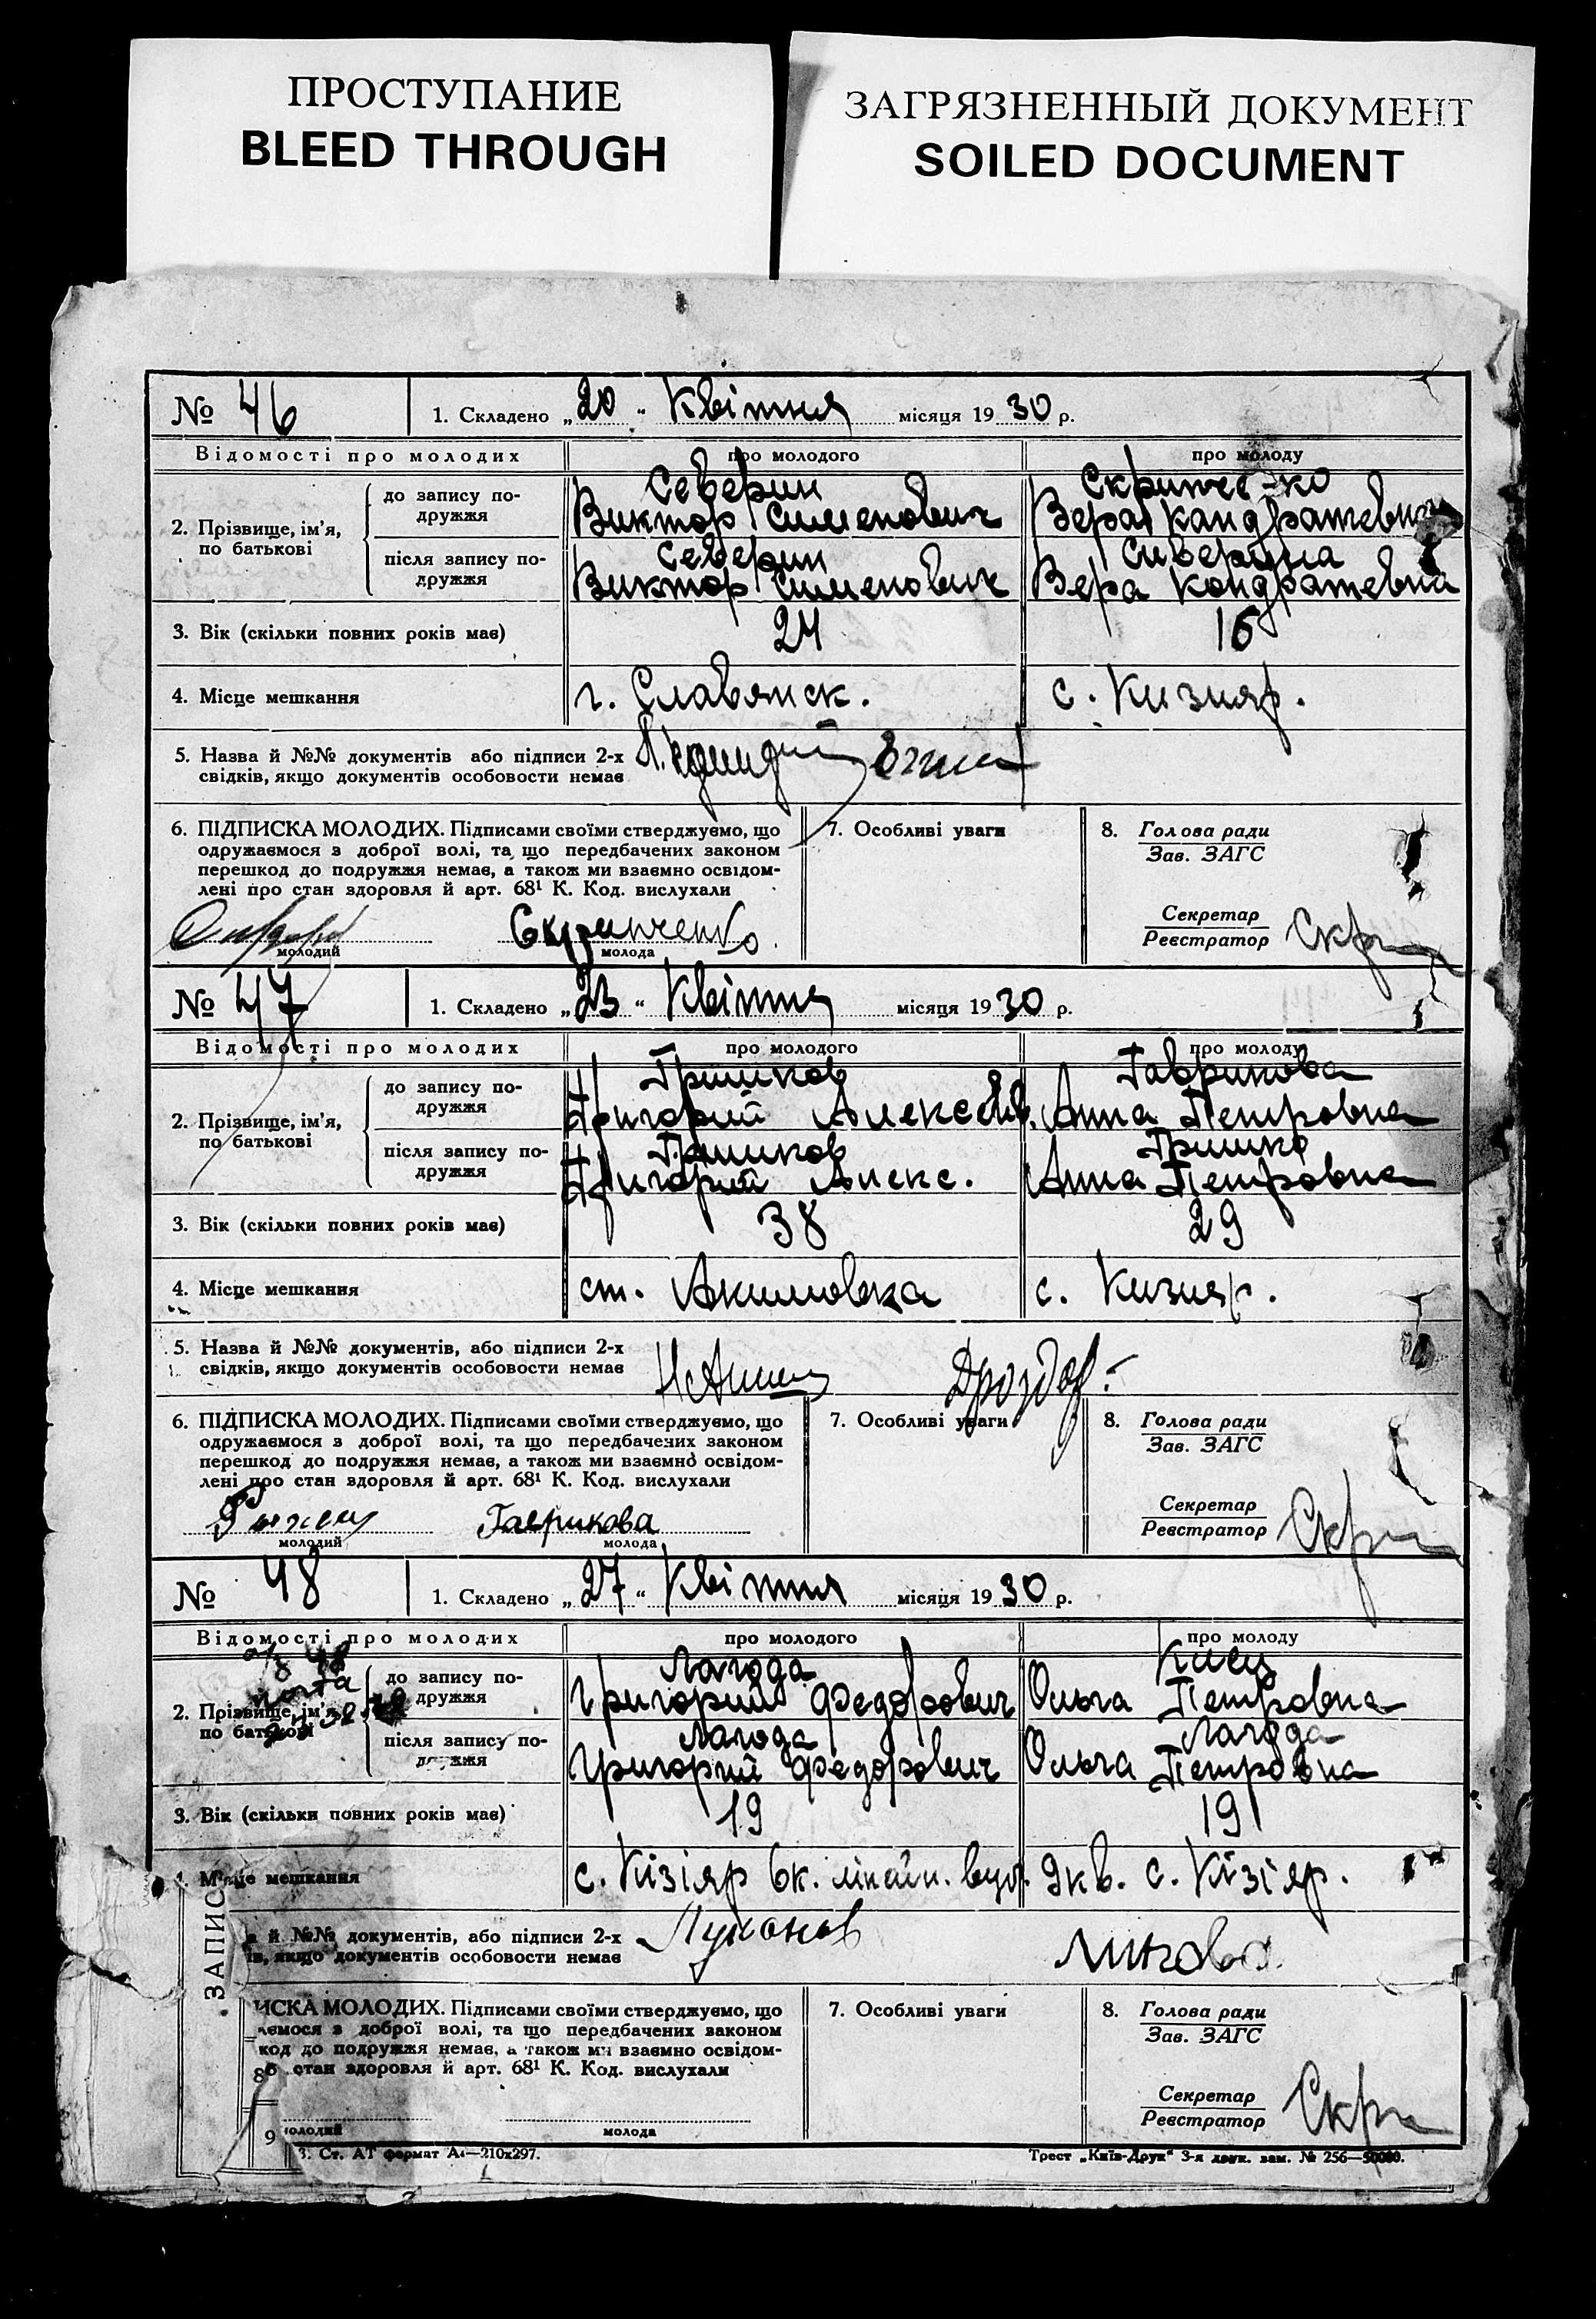 ПРОСТУПАНИЕ
BLEED THROUGH
ЗАГРЯЗНЕННЫЙ ДОКУМЕНТ
SOILED DOCUMENT
№ 46 1. Складено „20“ Квітня місяця 1930 р.
Відомості про молодих про молодого про молоду
2. Прізвище, ім’я, по батькові
до запису подружжя
Северин
Виктор Сименович
Вера Кандратевна
після запису подружжя
Северин
Виктор Сименович
Сиверина
Вера Кондратевна
3. Вік (скільки повних років має) 24 16
4. Місце мешкання г. Славянск. с. Кизияр.
5. Назва й №№ документів або підписи 2-х
свідків, якщо документів особовости немає
6. ПІДПИСКА МОЛОДИХ. Підписами своїми стверджуємо, що
одружаємося з доброї волі, та що передбачених законом
перешкод до подружжя немає, а також ми взаємно освідом-
лені про стан здоровля й арт. 68¹ К. Код. вислухали
Скрипченко
молодий молода
7. Особливі уваги
8. Голова ради
Зав. ЗАГС
Секретар
Реєстратор Скр
№ 47 1. Складено „23“ Квітня місяця 1930 р.
Відомості про молодих про молодого про молоду
2. Прізвище, ім’я, по батькові
до запису подружжя
Гришков
Григорий Алексеев.
Гаврикова
Анна Петровна
після запису подружжя
Гришков
Григорий Алекс.
Гришко
Анна Петровна
3. Вік (скільки повних років має) 38 29
4. Місце мешкання ст. Акимовка с. Кизияр.
5. Назва й №№ документів, або підписи 2-х
свідків, якщо документів особовости немає
Дроздов
6. ПІДПИСКА МОЛОДИХ. Підписами своїми стверджуємо, що
одружаємося з доброї волі, та що передбачених законом
перешкод до подружжя немає, а також ми взаємно освідом-
лені про стан здоровля й арт. 68¹ К. Код. вислухали
Гаврикова
молодий молода
7. Особливі уваги
8. Голова ради
Зав. ЗАГС
Секретар
Реєстратор Скр
№ 48 1. Складено „27“ Квітня місяця 1930 р.
Відомості про молодих про молодого про молоду
2. Прізвище, ім’я, по батькові
до запису подружжя
Лагода
Григорий Федорович
Киец
Ольга Петровна
після запису подружжя
Лагода
Григорий Федорович
Лагода
Ольга Петровна
3. Вік (скільки повних років має) 19 19
4. Місце мешкання с. Кізіяр 6к. 9кв. с. Кізіяр.
й №№ документів, або підписи 2-х
якщо документів особовости немає
Луханов
ИСКА МОЛОДИХ. Підписами своїми стверджуємо, що
ємося з доброї волі, та що передбачених законом
код до подружжя немає, а також ми взаємно освідом-
стан здоровля й арт. 68¹ К. Код. вислухали
молодий молода
7. Особливі уваги
8. Голова ради
Зав. ЗАГС
Секретар
Реєстратор Скр
ЗАПИС
8
9
3. Ст. АТ формат А4—210х297.
Трест „Київ-Друк“ 3-я друк. зам. № 256—50000.